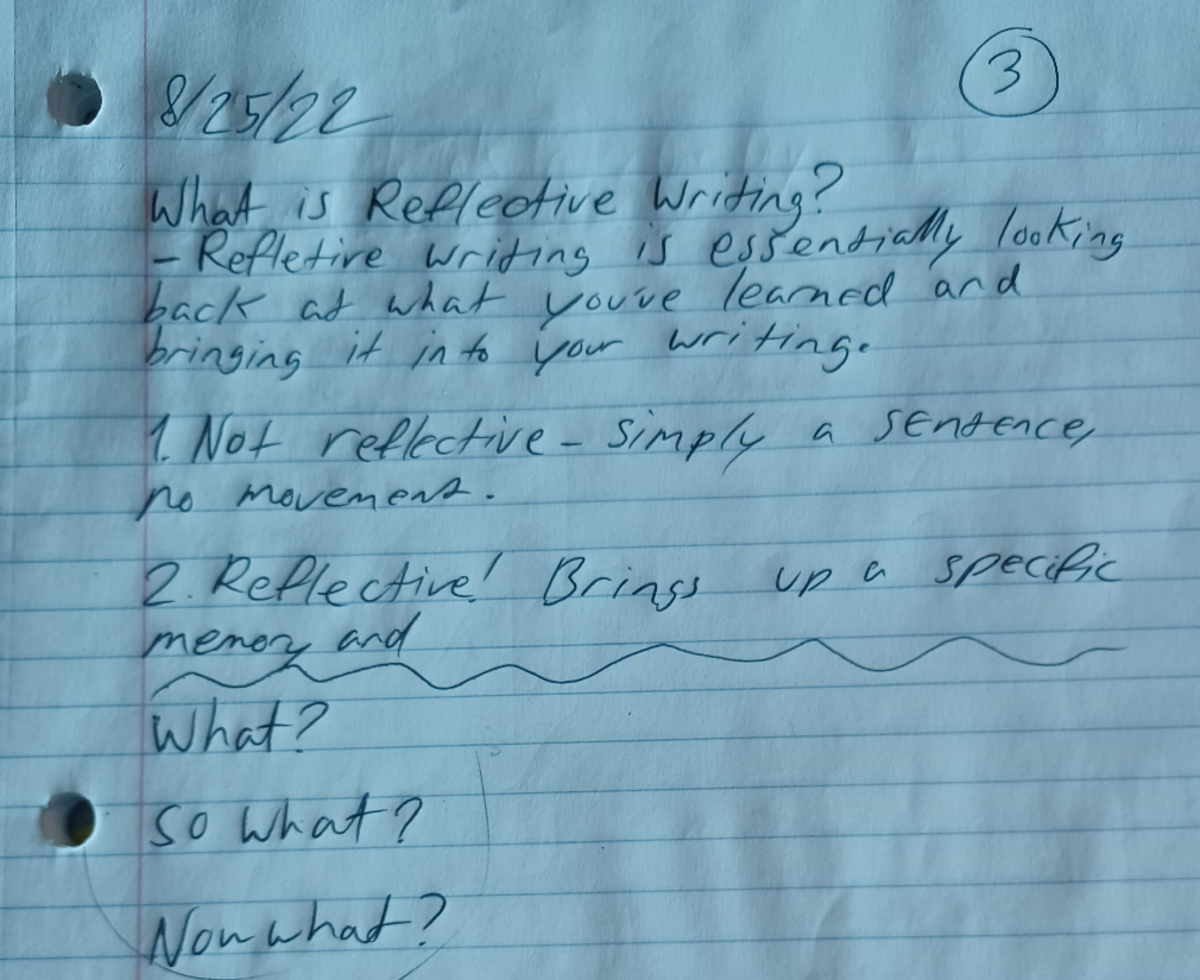 3
8/25/22
What is Reflective Writing?
- Refletive writing is essentially looking
back at what you've learned and
bringing it into your writing.
1. Not reflective - simply a sentence,
no movement.
2. Reflective! Brings up a specific
memory and
What?
So what?
Now what?